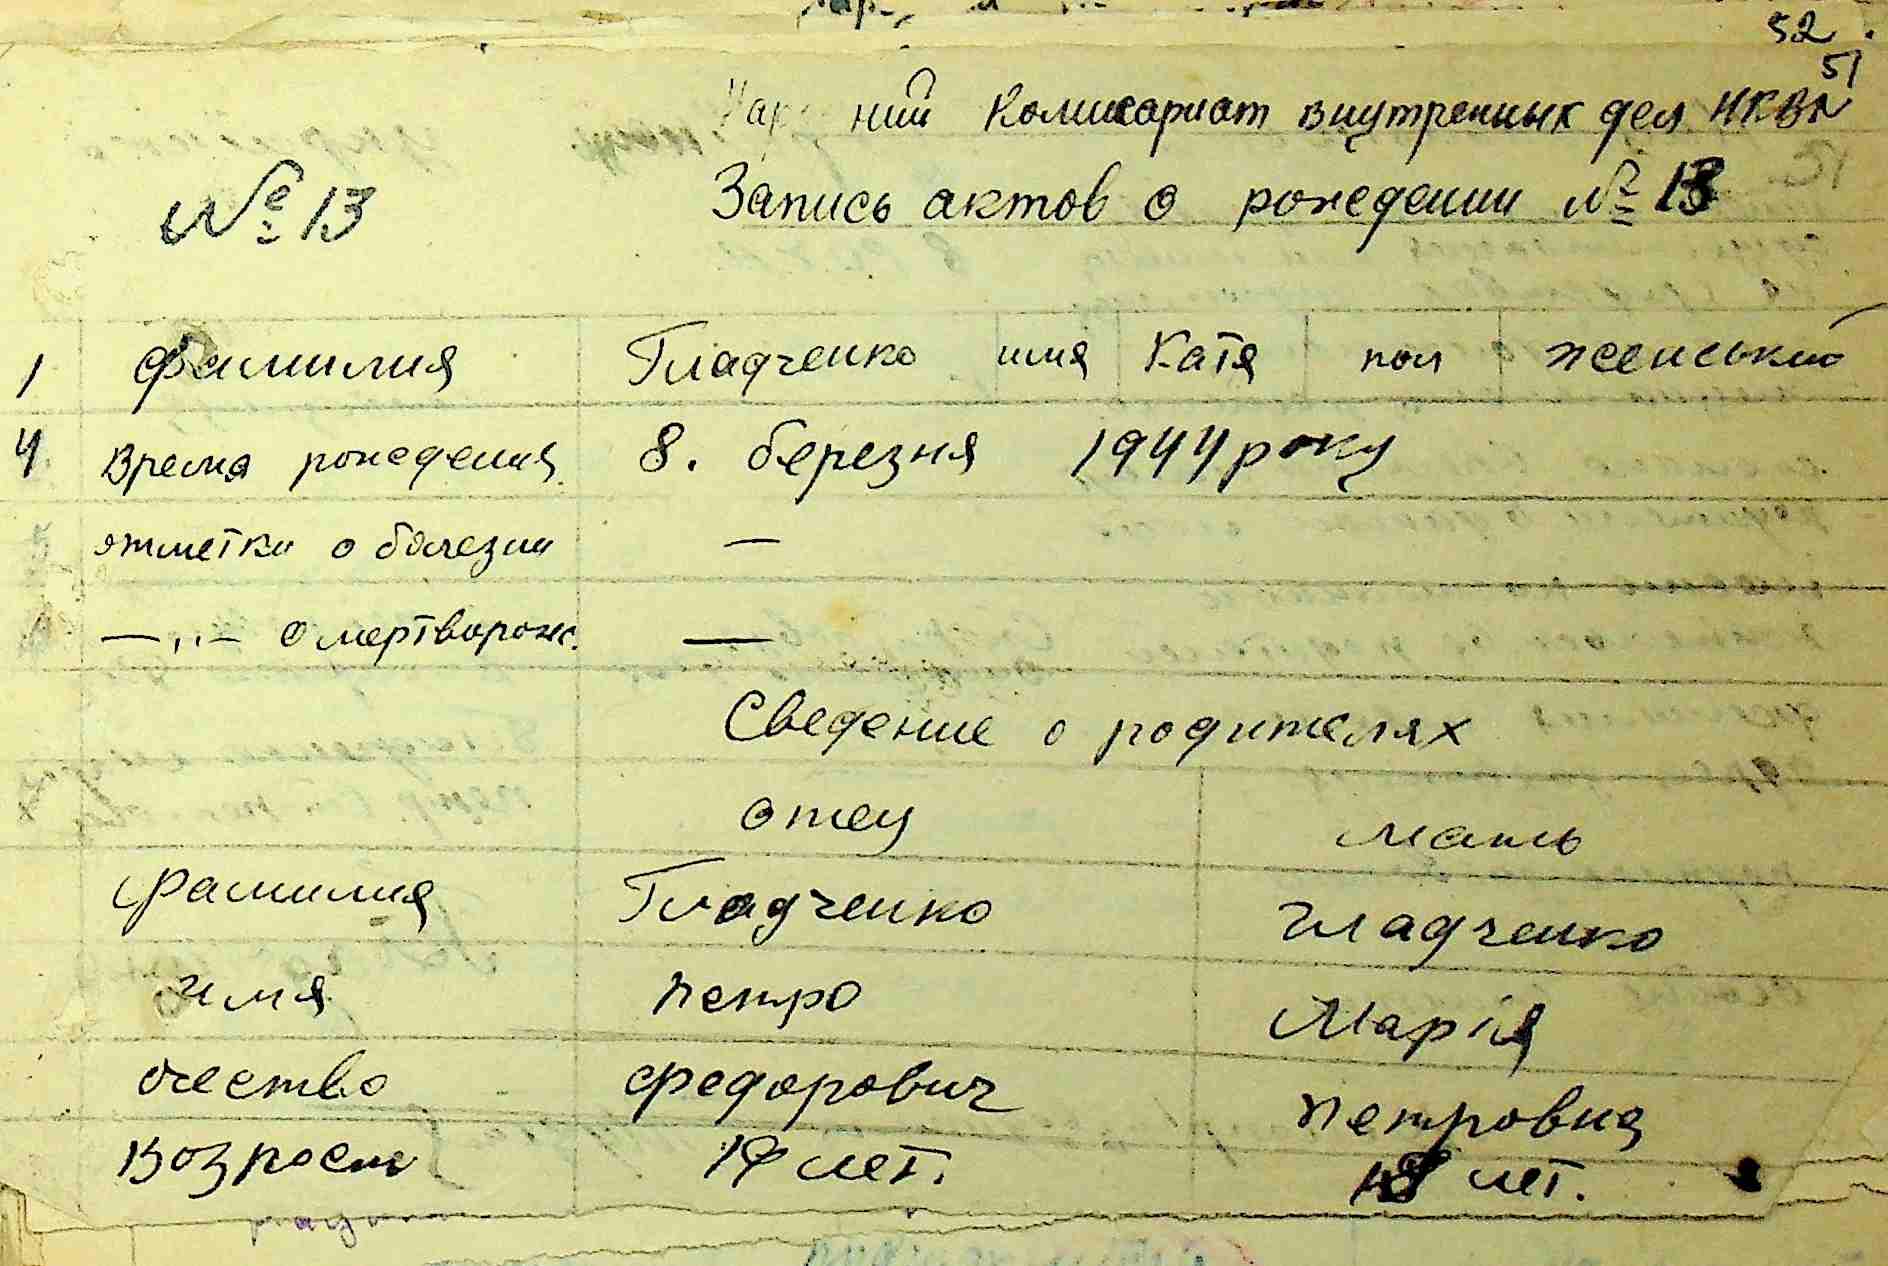 52.
51
ний Комисариат внутренных дел НКВД
№ 13
Запись актов о рождении № 13
1 фамилия Гладченко имя Катя пол женський
4 Время рождения 8. березня 1944 року
отметки о болезни —
— „ — о мертворож. —
Сведение о родителях
отец мать
фамилия Гладченко Гладченко
имя петро Марія
очество федорович петровна
Возраст лет. лет.